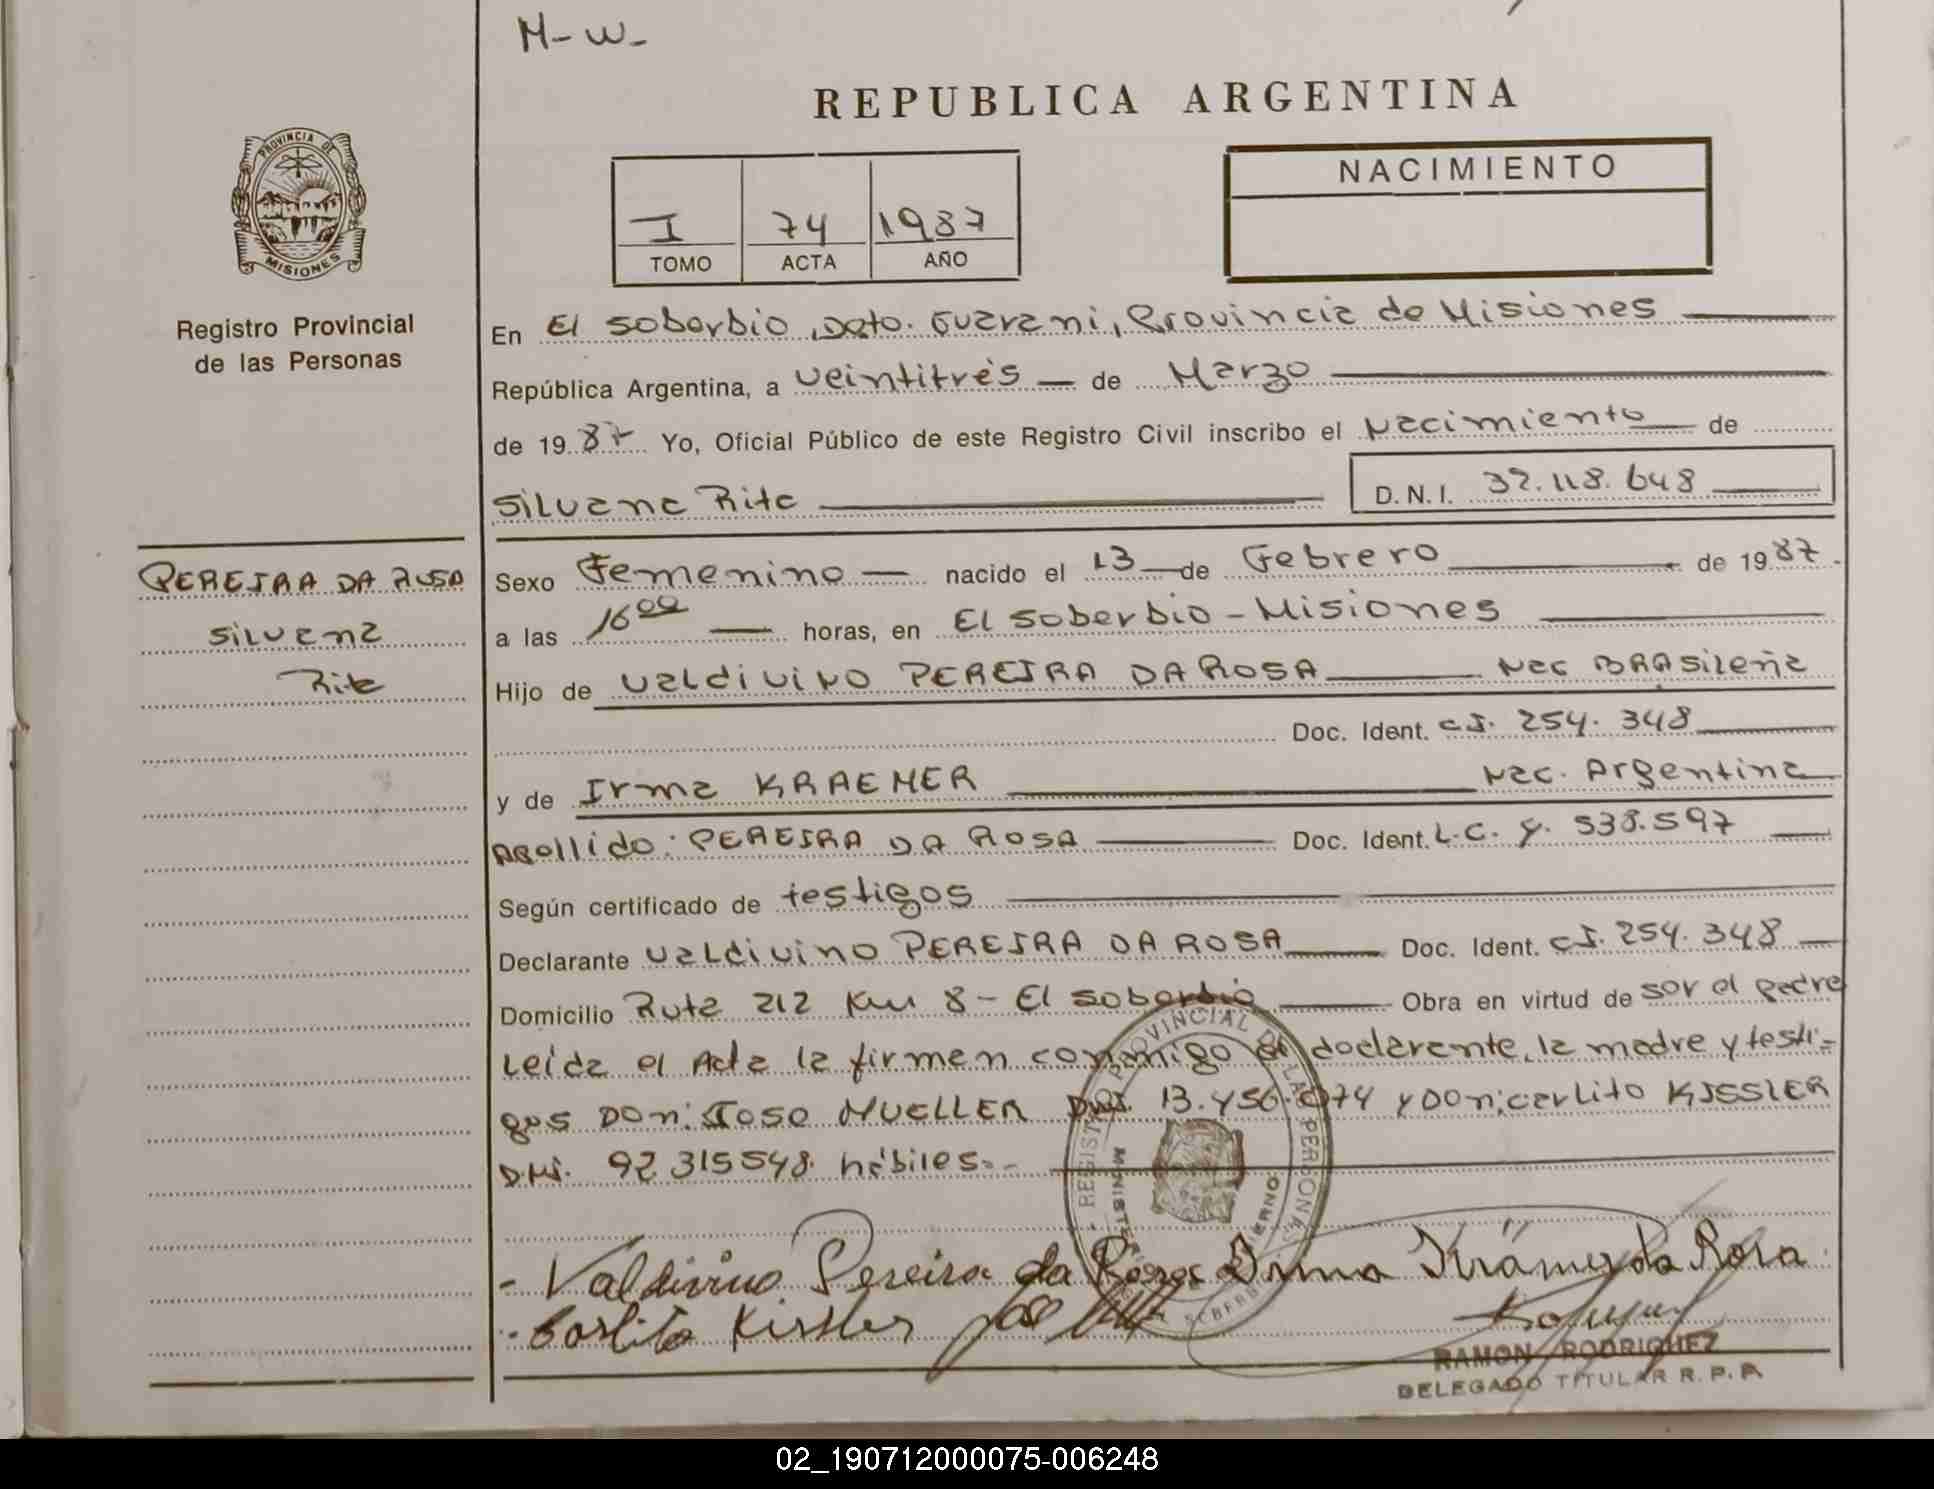 M-W-
REPUBLICA ARGENTINA
PROVINCIA DE
MISIONES
Registro Provincial
de las Personas
I 74 1987
TOMO ACTA AÑO
NACIMIENTO
En El Soberbio, Dpto. Guarani, Provincia de Misiones
República Argentina, a veintitrés de Marzo
de 1987 Yo, Oficial Público de este Registro Civil inscribo el Nacimiento de
Silvana Rita D.N.I. 32.118.648
PEREIRA DA ROSA
Silvana
Rita
Sexo Femenino nacido el 13 de Febrero de 1987
a las 16 00 horas, en El Soberbio - Misiones
Hijo de Valdivino PEREIRA DA ROSA Nac BRASileña
Doc. Ident. CI. 254.348
y de Irma KRAEMER Nac. Argentina
Apellido: PEREIRA DA ROSA Doc. Ident. L.C. 4.538.597
Según certificado de testigos
Declarante Valdivino PEREIRA DA ROSA Doc. Ident. CI. 254.348
Domicilio Ruta 212 Km 8 - El Soberbio Obra en virtud de ser el padre
Leida el Acta la firman conmigo el declarante, la madre y testi=
gos Don: Jose MUELLER DNI. 13.456.074 y Don: carlito KISSLER
DNI. 92.315548. hábiles.-
REGISTRO PROVINCIAL DE LAS PERSONAS
Valdivino Pereira da Rosa Irma Krämer da Rosa
Carlito Kissler
RAMON RODRIGUEZ
DELEGADO TITULAR R. P. P.
02_190712000075-006248